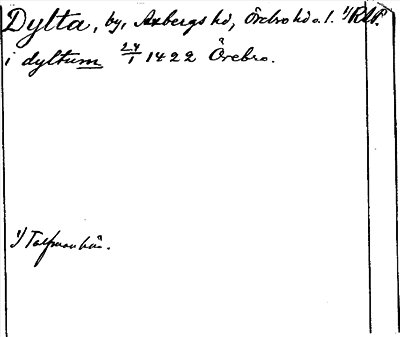 Dylta, by, Axbergs hd, Örebro hd o. l. 1/ RAP.
i dyltum 24/1 1422 Örebro.
1/